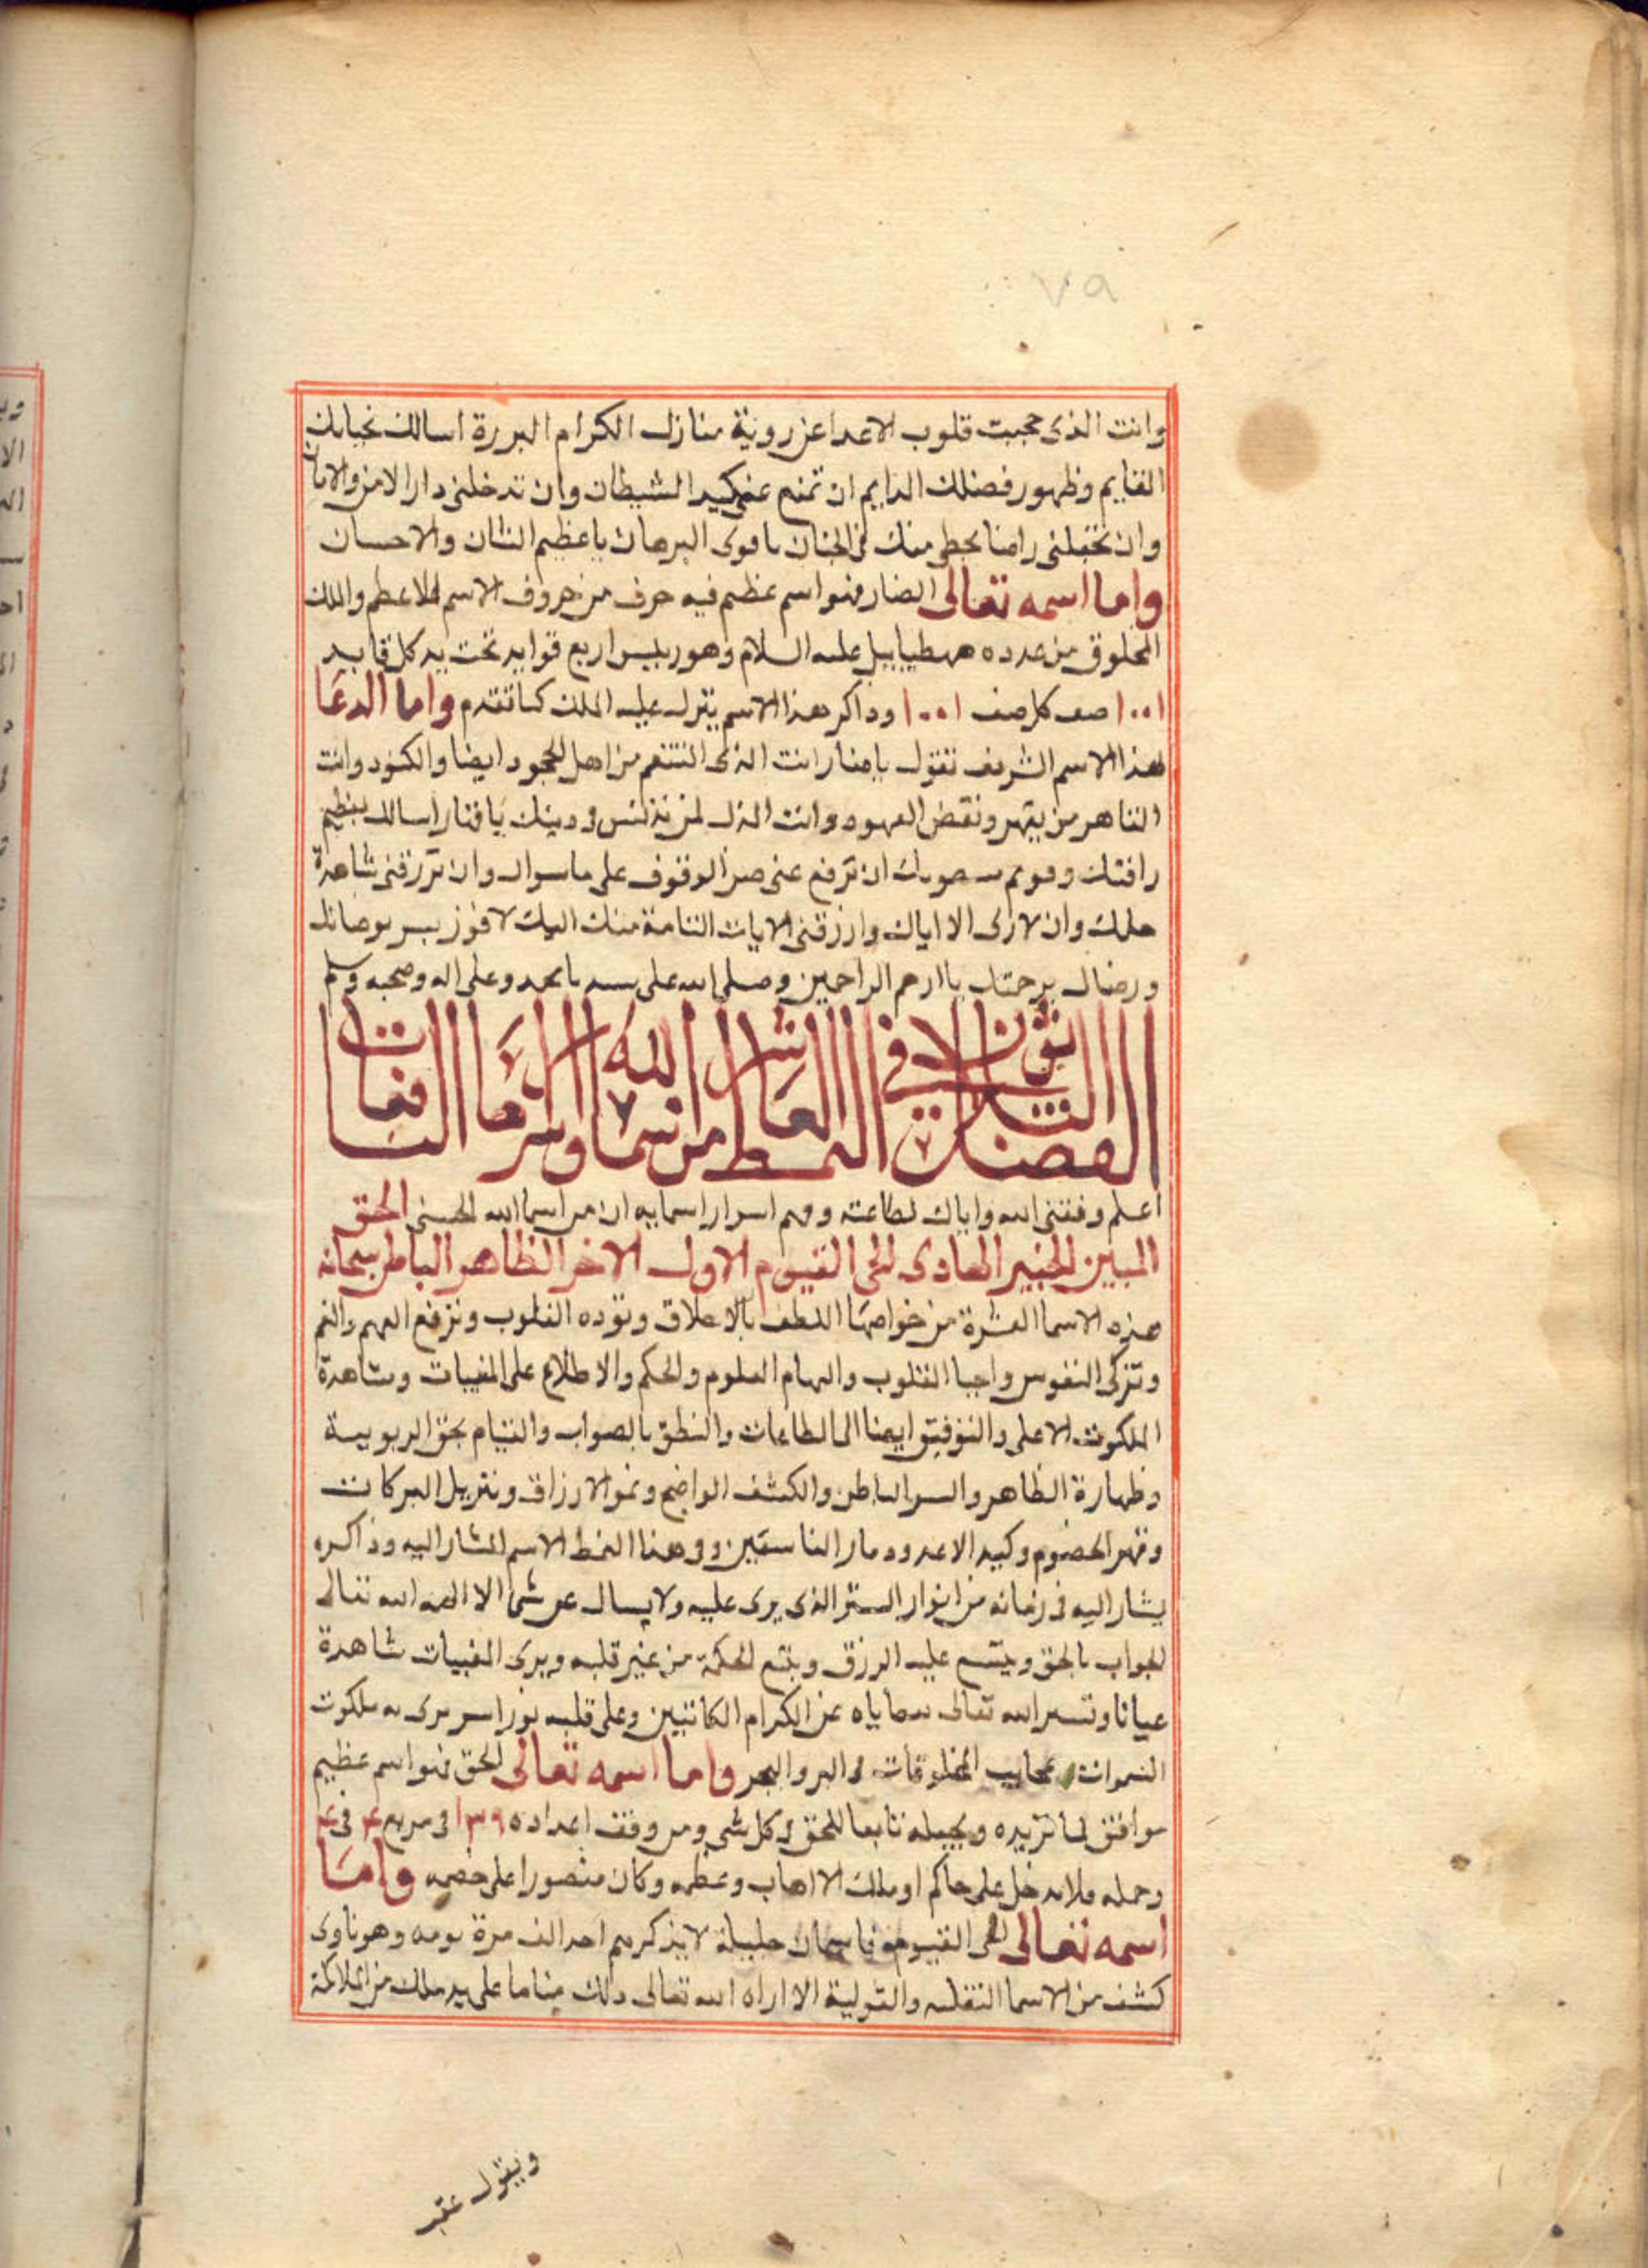 ٧٩
وانت الذى حجبت قلوب الاعدا عن روية منازل الكرام البررة اسالك بحبابك
القايم وظهور فضلك الدايم ان تمنع عنى كيد الشيطان وان تدخلنى دار الامن والامان
وان تجعلنى راضا بحظى منك فى الجنان يا قوى البرهان يا عظيم الشان والاحسان
واما اسمه تعالى الضار فهو اسم عظيم فيه حرف من حروف الاسم الاعظم والملك
المخلوق من عدده هطيابيل عليه السلام وهو رييس اربع قوايد تحت يد كل قايد
١٠٠١ صف كل صف ١٠٠١ وذاكر هذا الاسم ينزل عليه الملك كما تقدم واما الدعا
لهذا الاسم الشريف تقول يا ضار انت الذى المنتقم من اهل الجحود ايضا والكنود وانت
القاهر من يقهر ونقض العهود وانت المذل لمن دينك يا ضار اسالك بعظيم
رافتك ان ترفع عنى ضر الوقوف على ما سواك وان ترزقنى مشاهدة
وان لا ارى الا اياك وارزقنى الايات التامة منك اليك لافوز بسر بوصالك
ورضاك برحمتك يا ارحم الراحمين وصلى الله على سيدنا محمد وعلى اله وصحبه وسلم
الفصل الثلاثون فى النمط العاشر من اسما الله وسر الدعا النافعات
اعلم وفقنى الله واياك لطاعته وفهم اسرار اسمايه ان من اسما الله الحسنى الحق
المبين الخبير الهادى الحى القيوم الاول الاخر الظاهر الباطن سبحانه
هذه الاسما العشرة من خواصها اللطف بالاخلاق القلوب وترفع الهم والغم
وتزكى النفوس واحيا القلوب والهام العلوم والحكم والاطلاع على المغيبات ومشاهدة
الملكوت الاعلى والتوفيق ايضا الى الطاعات والنطق بالصواب والقيام بحق الربوبية
وطهارة الظاهر والسر الباطن والكشف الواضح ونمو الارزاق وتنزيل البركات
وقهر الخصوم وكيد الاعدا ودمار الفاسقين وفى هذا النمط الاسم المشار اليه وذاكره
يشار اليه فى زمانه من انوار الستر الذى يرى عليه ولا يسال عن شى الا الهمه الله تعالى
الجواب بالحق ويتسع عليه الرزق وينبع الحكمة من غير قلبه ويرى المغيبات مشاهدة
عيانا وتستر الله تعالى خطاياه عن الكرام الكاتبين وعلى قلبه نور اسر يرى به ملكوت
السموات وعجايب المخلوقات فى البر والبحر واما اسمه تعالى الحق فهو اسم عظيم
موافق لما تريده ويجعله تابعا للحق فى كل شى ومن وفق اعداده ١٣٩ فى مربع ٤ فى ٤
وحمله فلا يدخل على حاكم او ملك الا اهابه وعظمه وكان منصورا على خصمه واما
اسمه تعالى الحى القيوم فهما اسمان جليلان لا يذكرهم احد الف مرة يومه وهو ناوى
كشف من الاسما والتولية الا اراه الله تعالى ذلك مناما على يد ملك من الملايكة
ويقول عقبه